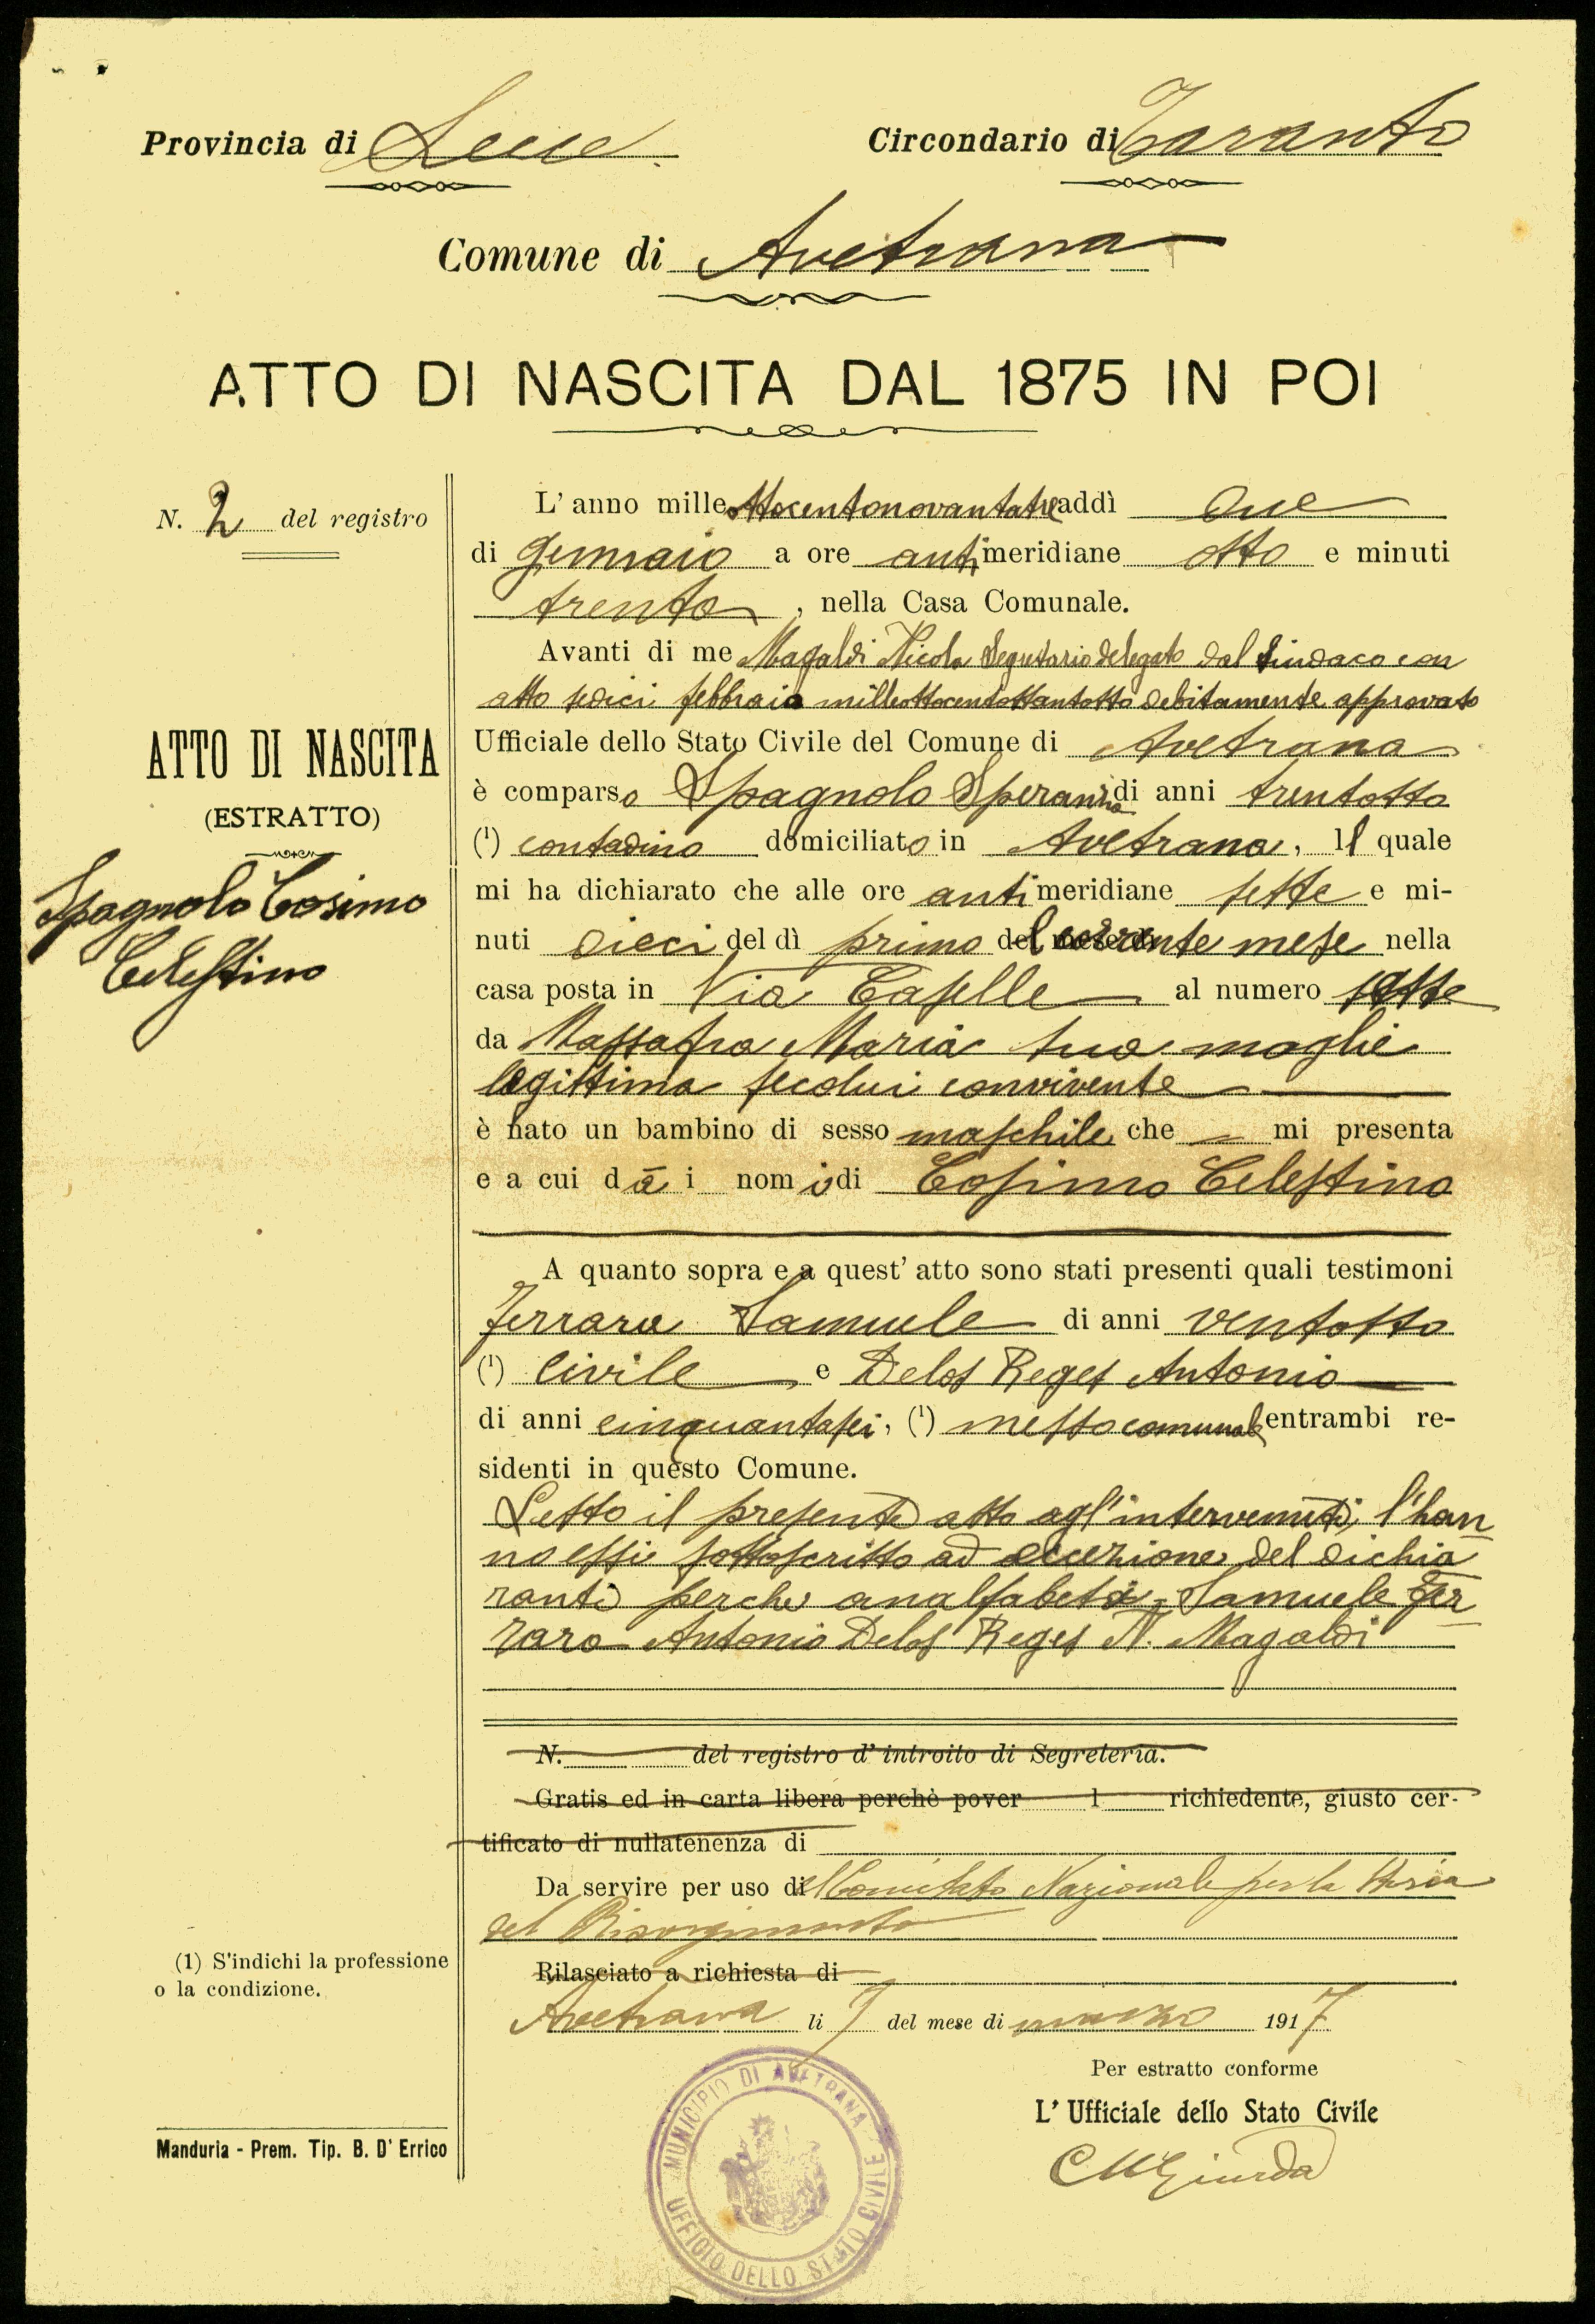 Provincia di Lecce
Circondario di Taranto
Comune di Avetrana
ATTO DI NASCITA DAL 1875 IN POI
N. 2 del registro
ATTO DI NASCITA
(ESTRATTO)
Spagnolo Cosimo
Celestino
(1) S'indichi la professione
o la condizione.
Manduria - Prem. Tip. B. D' Errico
L' anno mille ottocentonovantatre addì due
di Gennaio a ore antimeridiane otto e minuti
trenta, nella Casa Comunale.
Avanti di me Magaldi Nicola Segretario delegato dal Sindaco con
atto sedici febbraio milleottocentottantotto debitamente approvato
Ufficiale dello Stato Civile del Comune di Avetrana
è comparso Spagnolo Speranza di anni trentotto
(1) contadino domiciliato in Avetrana, Il quale
mi ha dichiarato che alle ore antimeridiane sette e mi-
nuti dieci del dì primo del corrente mese nella
casa posta in Via Caselle al numero sette
da Massafra Maria sua moglie
legittima secolui convivente
è nato un bambino di sesso maschile che mi presenta
e a cui dà i nomi di Cosimo Celestino
A quanto sopra e a quest' atto sono stati presenti quali testimoni
Ferrara Samuele di anni ventotto
(1) civile e Delos Reges Antonio
di anni cinquantasei, (1) messo comunale entrambi re-
sidenti in questo Comune.
Letto il presente atto agl'intervenuti, l'han
no essi sottoscritto ad eccezione del dichia
rante perchè analfabeta. Samuele Fer
raro Antonio Delos Reges N. Magaldi
N. del registro d' introito di Segreteria.
Gratis ed in carta libera perchè pover l richiedente, giusto cer-
tificato di nullatenenza di
Da servire per uso del Comitato Nazionale per la Storia
del Risorgimento
Rilasciato a richiesta di
Avetrana li 7 del mese di marzo 1917
Per estratto conforme
L' Ufficiale dello Stato Civile
MUNICIPIO DI AVETRANA
UFFICIO DELLO STATO CIVILE